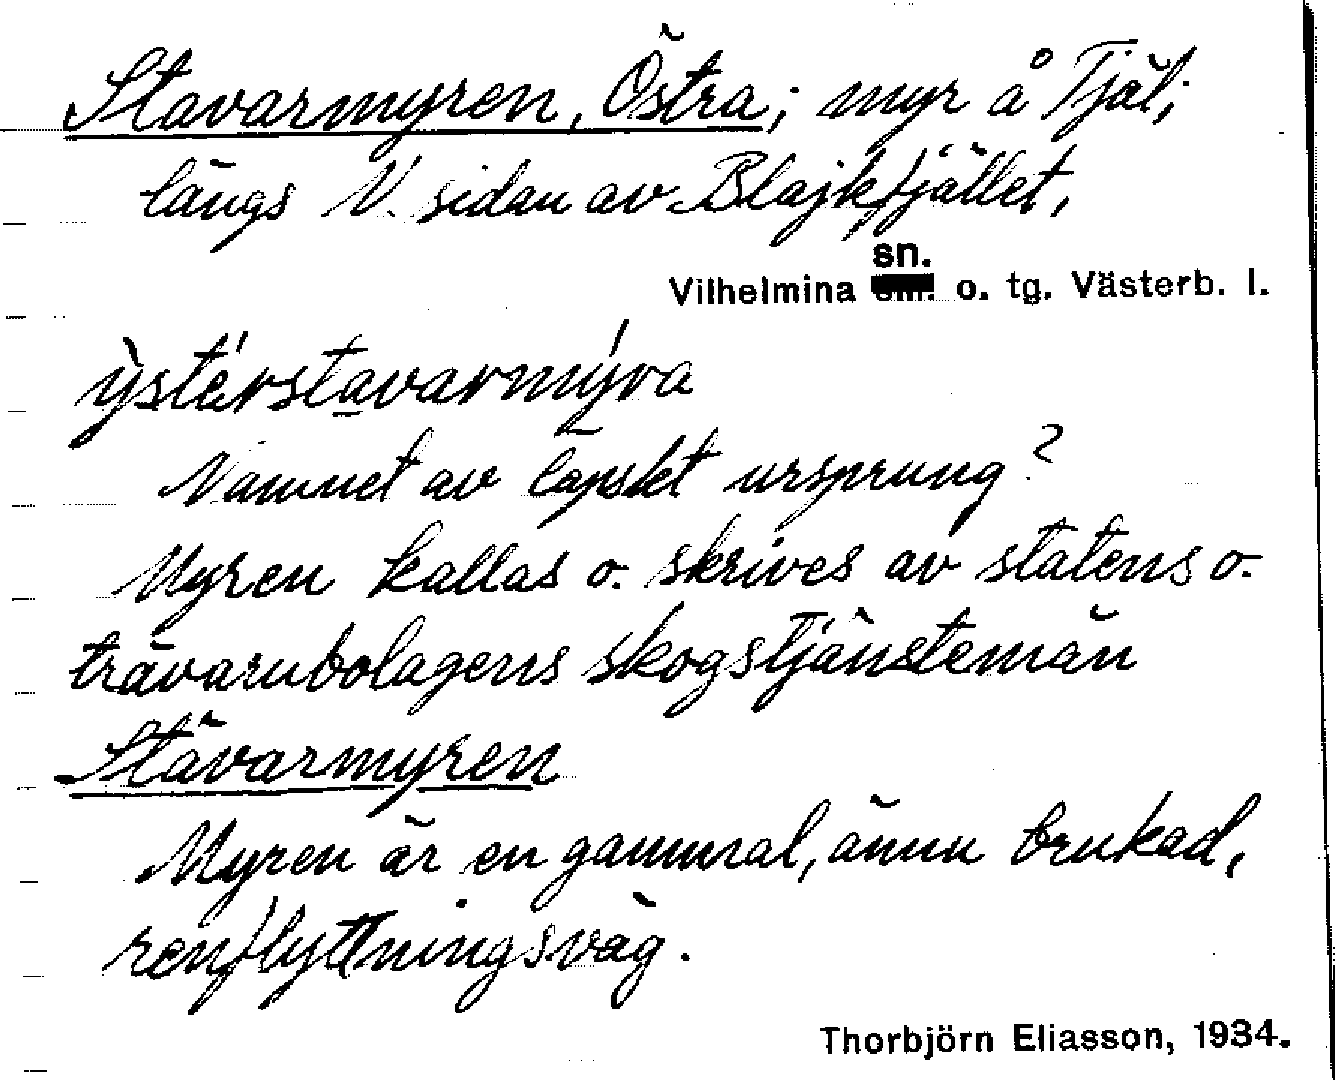 Stavarmyren, Östra; myr å Tjäl;
längs V. sidan av Blajkfjället,
sn.
Vilhelmina o. tg. Västerb. l.
ỳstérstavarmýra
Namnet av lapskt ursprung?
Myren kallas o. skrives av statens o.
trävarubolagens skogstjänstemän
Stävarmyren
Myren är en gammal, ännu brukad,
renflyttningsväg.
Thorbjörn Eliasson, 1934.